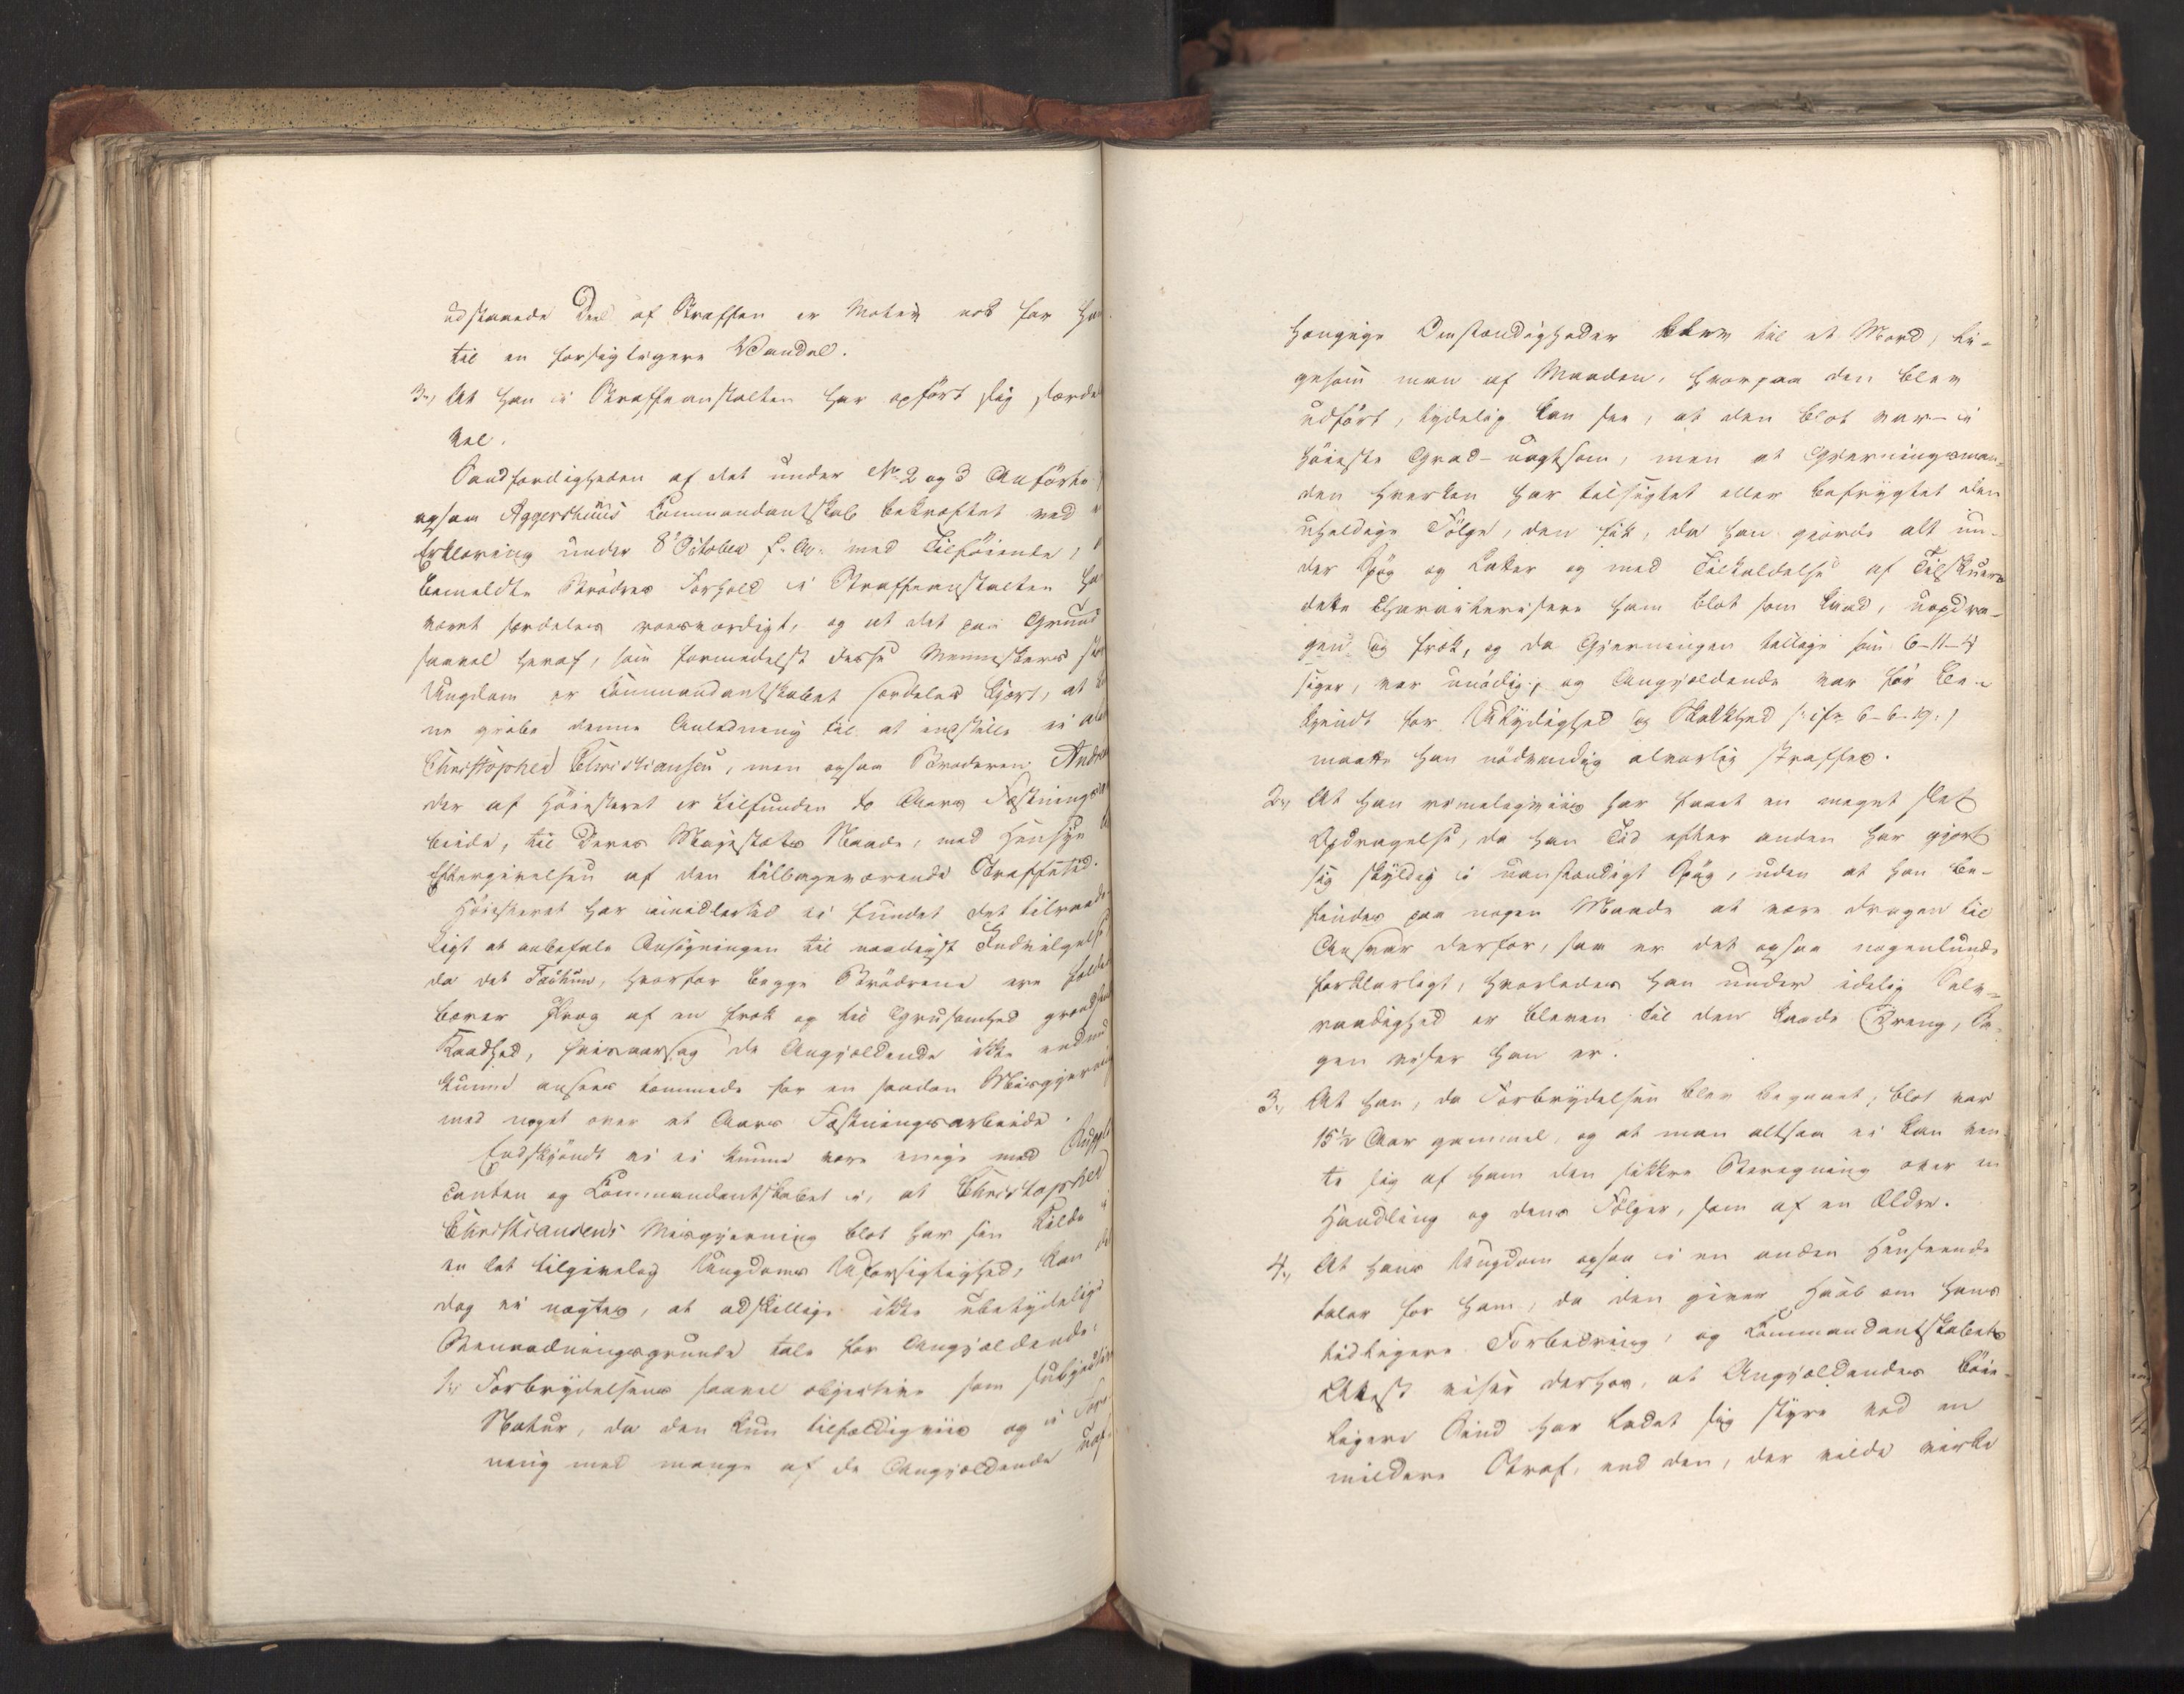 udstaaede Deel af Straffen er Motiv nok for ham
til en forsigtigere Vandel.
3., At han i Straffeanstalten har opført sig særdeles
vel.
Sandfærdigheden af det under No 2 og 3 Anførte
ogsaa Aggershuus Commandantskab bekræftet ved
Erklæring under 8 October f. A. med Tilføiende,
bemeldte Brødres Forhold i Straffeanstalten har
været særdeles roesværdigt, og at det paa Grund
saavel heraf, som formedelst disse Menneskers store
Ungdom er Commandantskabet særdeles kjært, at
ne gribe denne Anledning til at indstille ei alene
Christopher Christiansen, men ogsaa Broderen Andreas
der af Høiesteret er tilfunden to Aars Fæstningsar
beide, til Deres Majestæts Naade, med Hensyn til
Eftergivelsen af den tilbageværende Straffetid.
Høiesteret har imidlertid ei fundet det tilraade-
ligt at anbefale Ansøgningen til naadigst Indvilgelse
da det Factum, hvorfor begge Brødrene ere fældede
bærer Præg af en fræk og til Grusomhed grændsende
Kaadhed, hvisaarsag de Angjældende ikke endnu
kunne ansees tæmmede for en saadan Misgjerning
med noget over et Aars Fæstningsarbeide.
Endskjøndt vi ei kunne være enige med Suppli
canten og Commandantskabet i, at Christopher
Christiansens Misgjerning blot har sin Kilde i
en let tilgivelig Ungdoms Uforsigtighed, kan det
dog ei nægtes, at adskillige ikke ubetydelige
Benaadningsgrunde tale for Angjældende:
1., Forbrydelsens saavel objective som subjective
Natur, da den kun tilfældigviis og i Fore
ning med mange af de Angjældende uaf-
hængige Omstændigheder blev til et Mord, li-
gesom man af Maaden, hvorpaa den blev
udført, tydelig kan see, at den blot var i
høieste Grad uagtsom, men at Gjerningsman-
den hverken har tilsigtet eller befrygtet den
uheldige Følge, den fik, da han giorde alt un-
der Spøg og Latter og med Tilkaldelse af Tilskuere
dette Characteriserer ham blot som kaad, uopdra-
gen og fræk, og da Gjerningen tillige som 6-11-4
siger, var unødig, og Angjældende var før be-
kjendt for Utydighed og Skalkhed /: ifr. 6-6-19:/
maatte han nødvendig alvorlig straffes.
2., At han rimeligviis har faaet en meget slet
Opdragelse, da han Tid efter anden har gjort
sig skyldig i uanstændigt Spøg, uden at han be-
findes paa nogen Maade at være dragen til
Ansvar derfor, saa er det ogsaa nogenlunde
forklarligt, hvorledes han under idelig Selv-
raadighed er bleven til den kaade Dreng, Sa-
gen viser han er.
3., At han, da Forbrydelsen blev begaaet, blot var
15½ Aar gammel, og at man altsaa ei kan ven-
te sig af ham den sikkre Beregning over en
Handling og dens Følger, som af en Ældre.
4., At hans Ungdom ogsaa i en anden Henseende
taler for ham, da den giver Haab om hans
tidligere Forbedring, og Commandantskabets
Attest viser derhos, at Angjældendes bøie-
ligere Sind har ladet sig styre ved en
mildere Straf, end den, der vilde virke